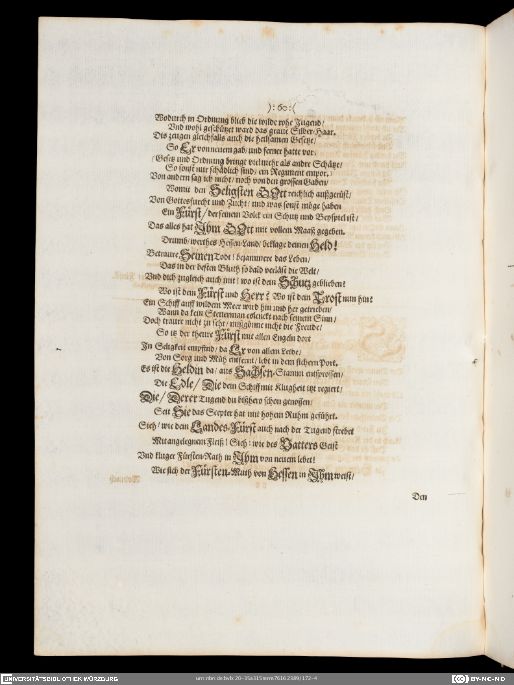 ):60:(
Wodurch in Ordnung blieb die wilde rohe Jugend/
Vnd wohl geschützet ward das graue Silber-Haar.
Dis zeugen gleichfalls auch die heilsamen Gesetze/
So Er von neuem gab/ und ferner hatte vor.
(Gesetz und Ordnung bringt viel mehr als andre Schätze/
So sonst nur schädlich sind/ ein Regiment empor.)
Von andern sag ich nicht/ noch von den grossen Gaben/
Womit den Seligsten GOtt reichlich außgerüst/
Von Gottesfurcht und Zucht/ und was sonst möge haben
Ein Fürst/ der seinem Volck ein Schutz und Beyspiel ist/
Das alles hat Ihm GOtt mit vollem Maaß gegeben.
Drumb/ werthes Hessen-Land/ beklage deinen Held!
Betraure Seinen Todt! bejammere das Leben/
Das in der besten Blüth so bald verläst die Welt/
Und dich zugleich auch mit! wo ist dein Schutz geblieben?
Wo ist dein Fürst und Herr? Wo ist dein Trost nun hin?
Ein Schiff auff wildem Meer wird hin und her getrieben/
Wann da kein Steuerman es lenckt nach seinem Sinn/
Doch traure nicht zu sehr/ mißgönne nicht die Freude/
So itz der theure Fürst mit allen Engeln dort
In Seligkeit empfind/ da Er von allem Leide/
Von Sorg und Müh entfernt/ lebt in dem sichern Port.
Es ist die Heldin da/ aus Sachsen-Stamm entsprossen/
Die Edle/ Die dein Schiff mit Klugheit itzt regiert/
Die/ Derer Tugend du bißhero schon genossen/
Seit Sie das Scepter hat mit hohem Ruhm geführt.
Sieh/ wie dein Landes-Fürst auch nach der Tugend strebet
Mit angelegnem Fleiß! Sieh/ wie des Vatters Geist
Vnd kluger Fürsten-Rath in Ihm von neuem lebet!
Wie sich der Fürsten-Muth von Hessen in Ihm weist/
Den
UNIVERSITÄTSBIBLIOTHEK WÜRZBURG
BY-NC-ND